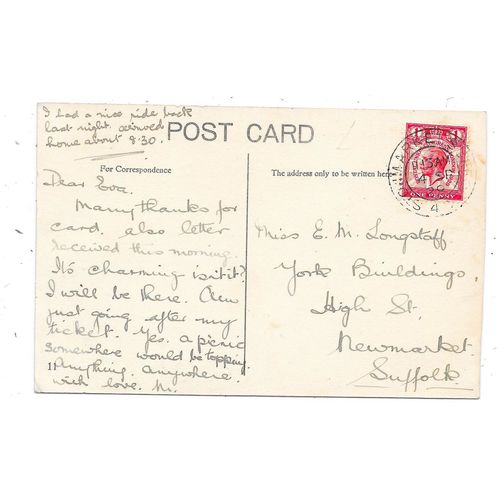 I had a nice ride back
last night. arrived
home about 8.30.
POST CARD
For Correspondence
The address only to be written here
Dear Eva.
Many thanks for
card. also letter
received this morning.
It's charming isn't it?
I will be there. Am
just going after my
ticket. Yes. a picnic
somewhere would be topping
Anything. Anywhere.
with love. M.
11
Miss E. M. Longstaff
York Buildings,
High St,
Newmarket.
Suffolk.
1 1
ONE PENNY